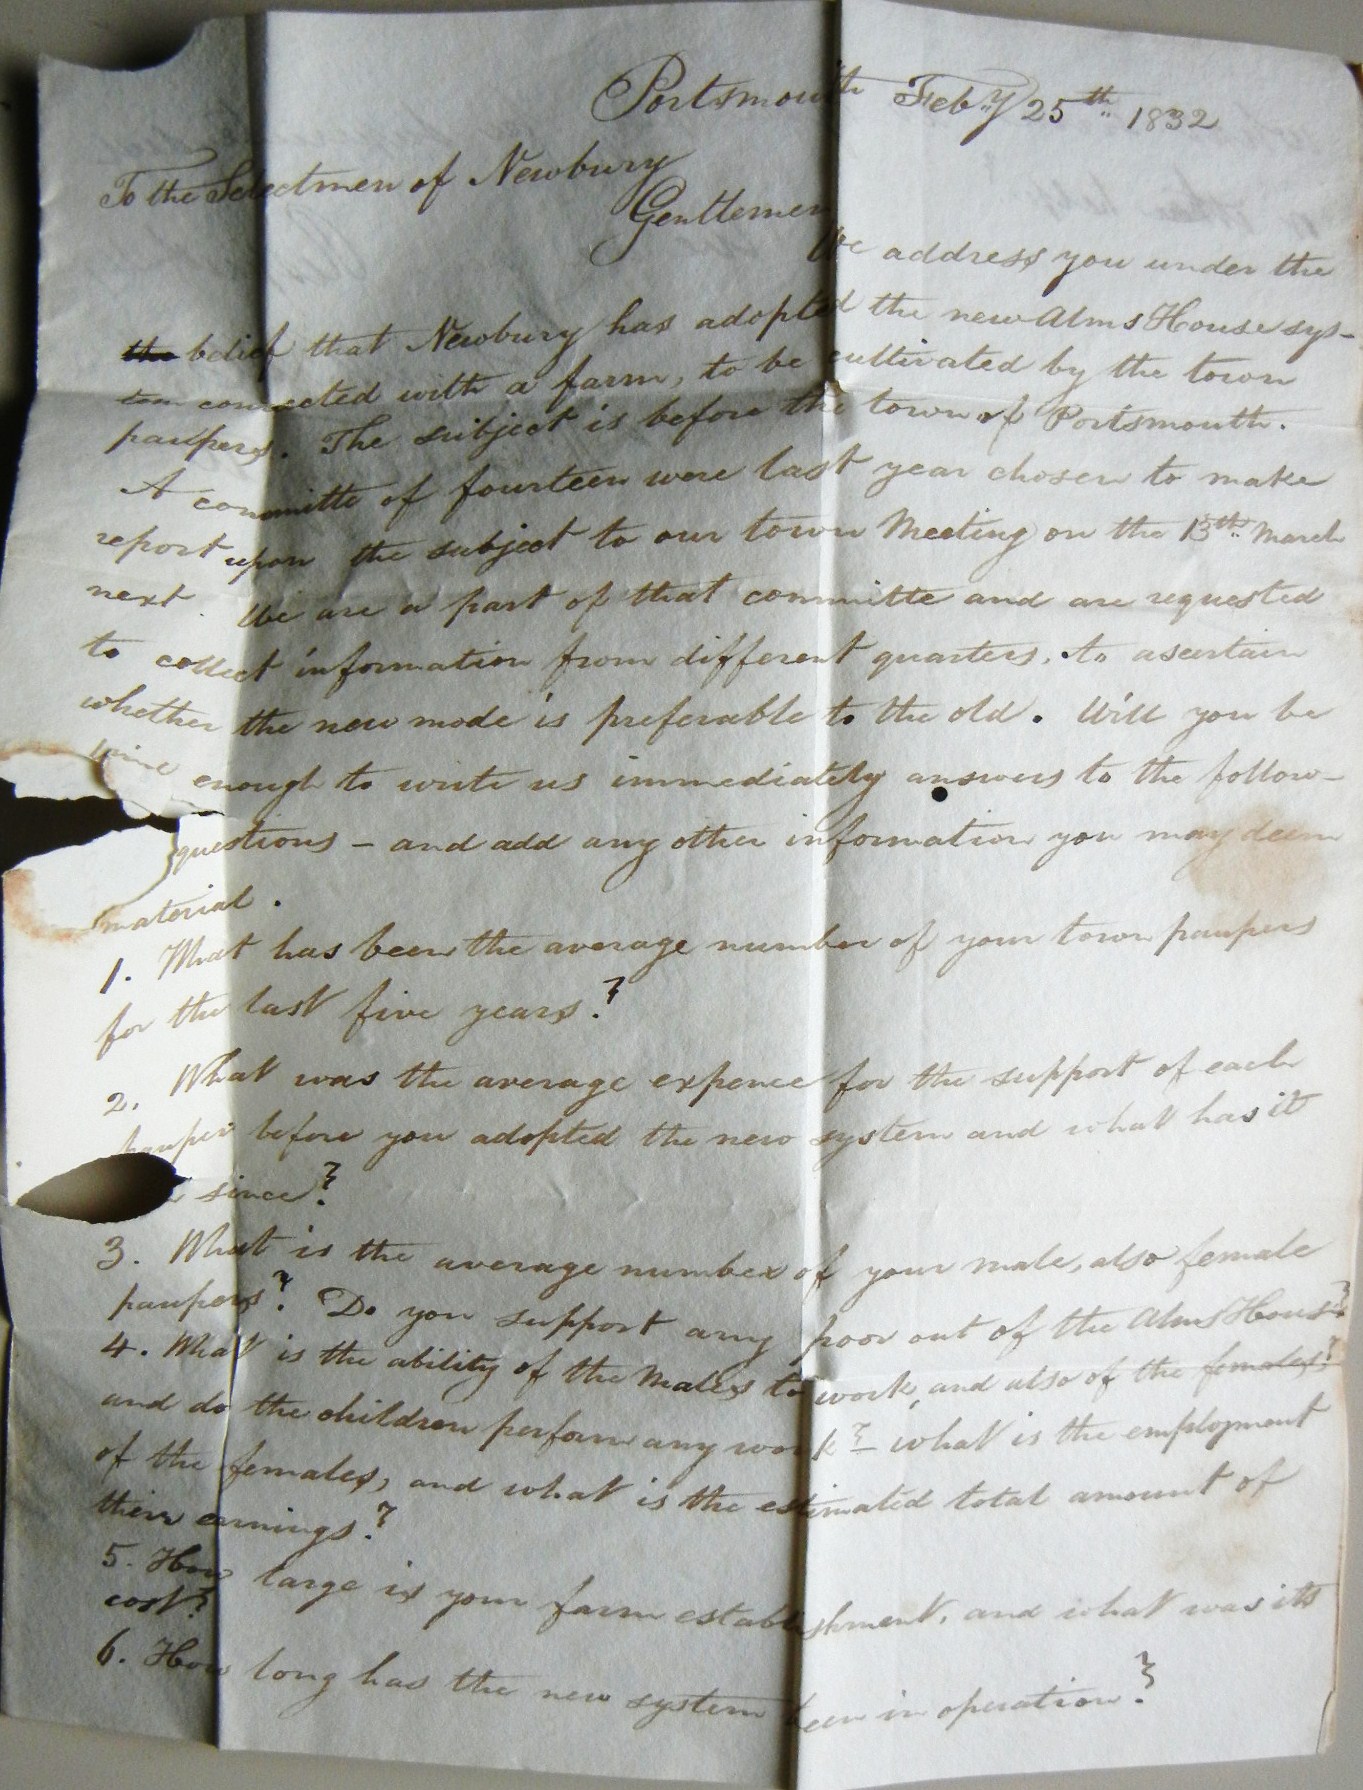 Portsmouth Feby 25th 1832
To the Selectmen of Newbury
Gentlemen
We address you under the
the belief that Newbury has adopted the new Alms House sys-
tem connected with a farm, to be cultivated by the town
paupers. The subject is before the town of Portsmouth.
A committe of fourteen were last year chosen to make
report upon the subject to our town Meeting on the 13th March
next. We are a part of that committe and are requested
to collect information from different quarters, to ascertain
whether the new mode is preferable to the old. Will you be
enough to write us immediately answers to the follow-
questions - and add any other information you may deem
material.
1. What has been the average number of your town paupers
for the last five years?
2. What was the average expence for the support of each
pauper before you adopted the new system and what has it
since?
3. What is the average number of your male, also female
paupers? Do you support any poor out of the Alms House?
4. What is the ability of the Males to work, and also of the females?
and do the children perform any work? - what is the employment
of the females, and what is the estimated total amount of
their earnings?
5. How large is your farm establishment, and what was its
cost?
6. How long has the new system been in operation?